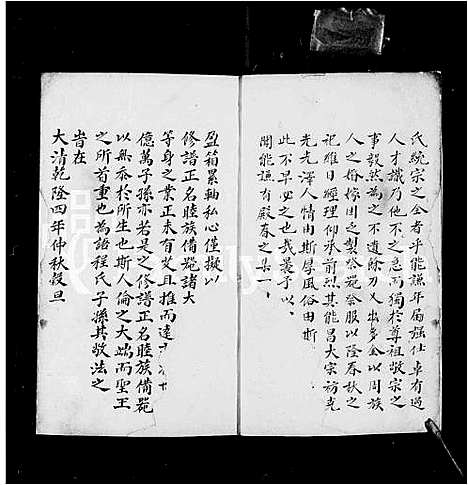 氏統宗之全者乎能謙年局強仕卓有過
人才識乃他不之急而獨於尊祖敬宗之
事毅然為之不遺餘力又出多金以周族
人之婚嫁困之製祭器祭服以隆春秋之
祀雅曰理仰承前烈其能昌大宗祊光
先澤人情由斯厚風俗由斯
此不早必之也我最予以
開能謙有厥春之集一
盈箱累軸私心僅擬以
修譜正名睦族備器諸大
等身之業正未有艾且推而達
億萬子孫亦若是之修譜正名睦族備器
以無忝於所生也斯人倫之大端而聖王
之所首重也為語程氏子孫其敬法之
旹在
大清乾隆四年仲秋穀旦